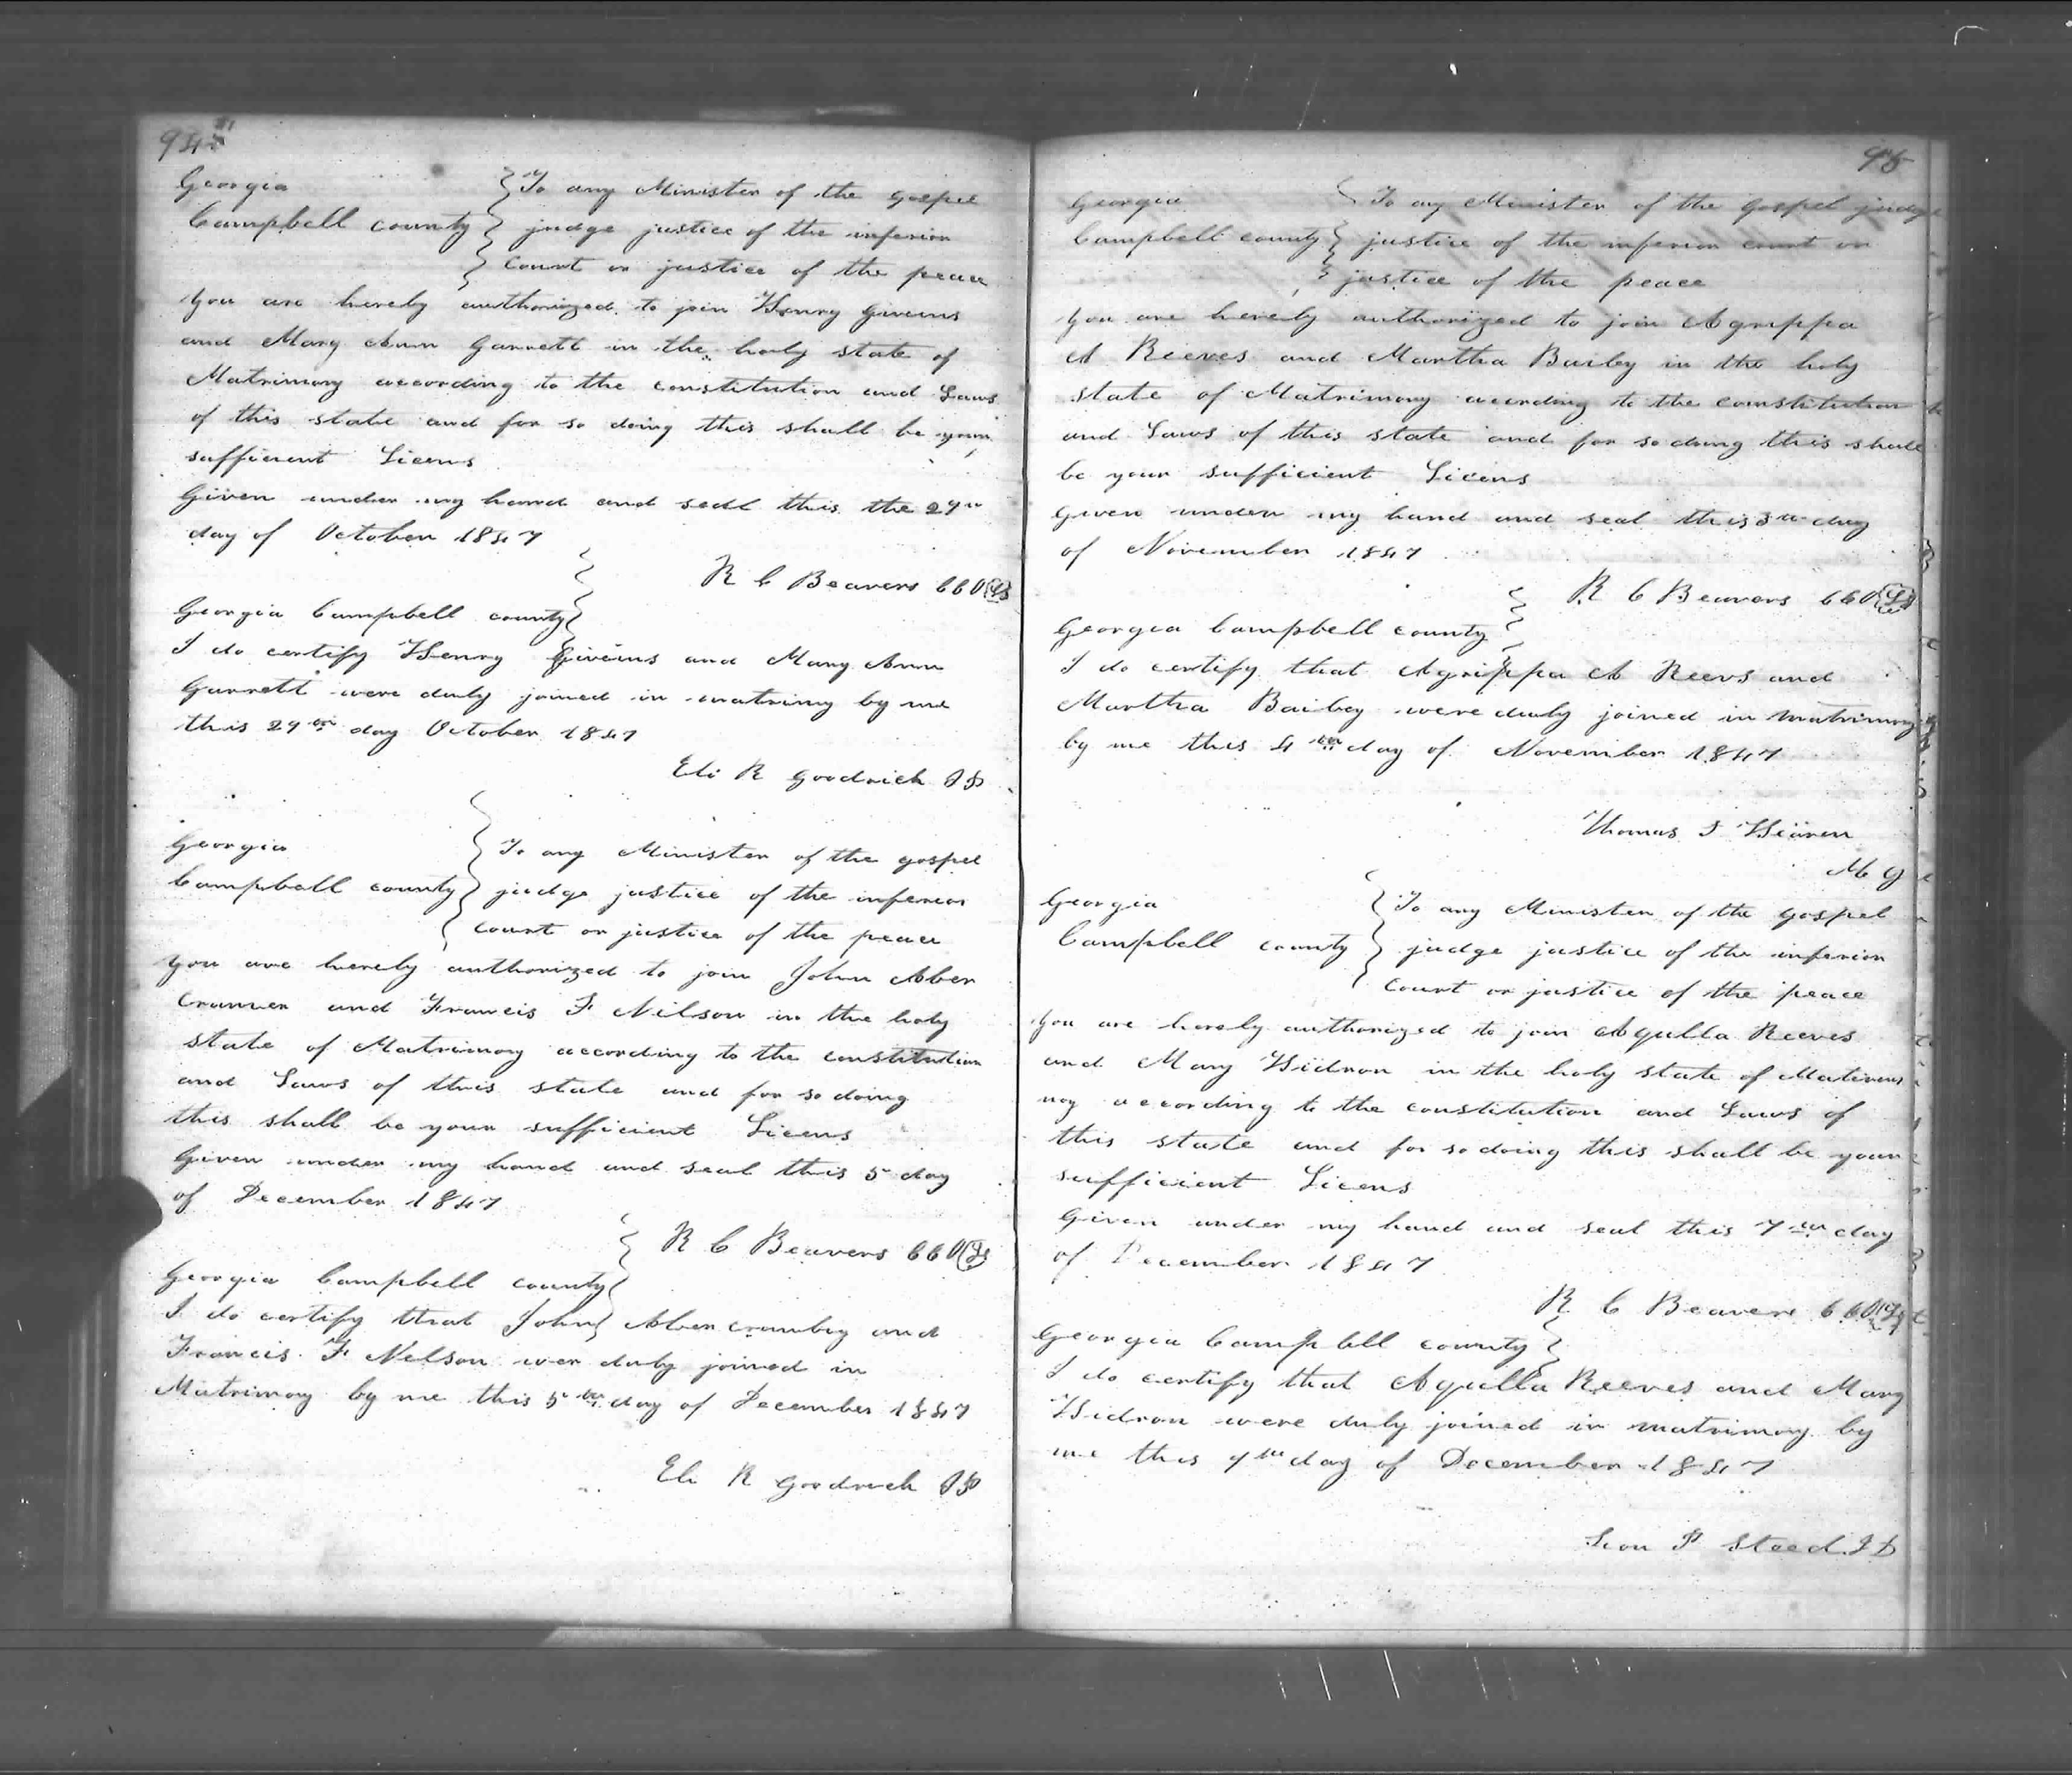 94
Georgia
Campbell county
To any Minister of the gospel
judge justice of the inferior
court or justice of the peace
You are hereby authorized to join Henry Giveins
and Mary Ann Garrett in the holy state of
Matrimony according to the constitution and Laws
of this state and for so doing this shall be your
sufficient Licens
Given under my hand and seal this the 29th
day of October 1847
R C Beavers CCO LS
Georgia Campbell county
I do certify Henry Giveins and Mary Ann
Garrett were duly joined in matrimy by me
this 29th day October 1847
Eli R Goodrich JP
Georgia
Campbell county
To any Minister of the gospel
judge justice of the inferior
court or justice of the peace
You are hereby authorized to join John Aber
cromer and Francis F Nilson in the holy
state of Matrimony according to the constitution
and Laws of this state and for so doing
this shall be your sufficient Licens
Given under my hand and seal this 5 day
of December 1847
R C Beavers CCO LS
Georgia Campbell county
I do certify that John Abercromby and
Francis F Nelson wer duly joined in
Matrimony by me this 5th day of December 1847
Eli R Goodrich JP
95
Georgia
Campbell county
To any Minister of the Gospel judge
justice of the inferior court or
justice of the peace
You are hereby authorized to join Agrippa
A Reeves and Martha Bailey in the holy
state of Matrimony according to the constitution
and Laws of this state and for so doing this shall
be your sufficient Licens
Given under my hand and seal this 3rd day
of November 1847
R C Beavers CCO LS
Georgia Campbell county
I do certify that Agrippa A Reevs and
Martha Bailey were duly joined in matrimony
by me this 4th day of November 1847
Thomas J
M G
Georgia
Campbell county
To any Minister of the gospel
judge justice of the inferior
court or justice of the peace
You are hereby authorized to join Aqulla Reeves
and Mary Hidron in the holy state of Matrimo
ny according to the constitution and Laws of
this state and for so doing this shall be your
sufficient Licens
Given under my hand and seal this 7th day
of December 1847
R C Beavers CCO LS
Georgia Campbell county
I do certify that Aqulla Reeves and Mary
Hidron were duly joined in matrimony by
me this 9th day of December 1847
P Steed JP